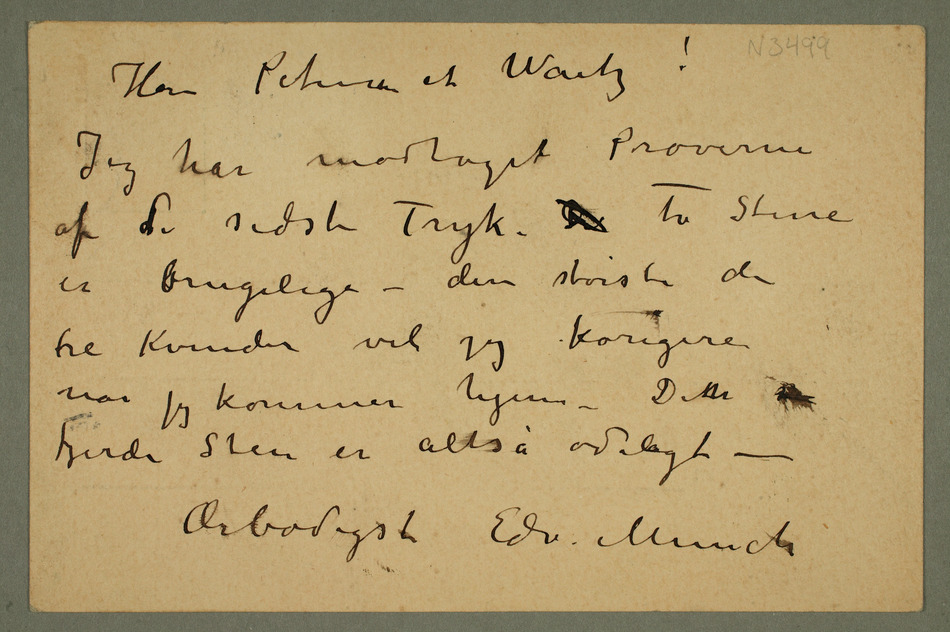 N3499
Herr Petersen et Waitz!
Jeg har modtaget Prøverne
af de sidste Tryk. to Stene
er brugelige – den største de
tre Kvinder vil jeg korigere
når jeg kommer hjem – Den
fjerde Sten er altså ødelagt —
Ærbødigst Edv. Munch